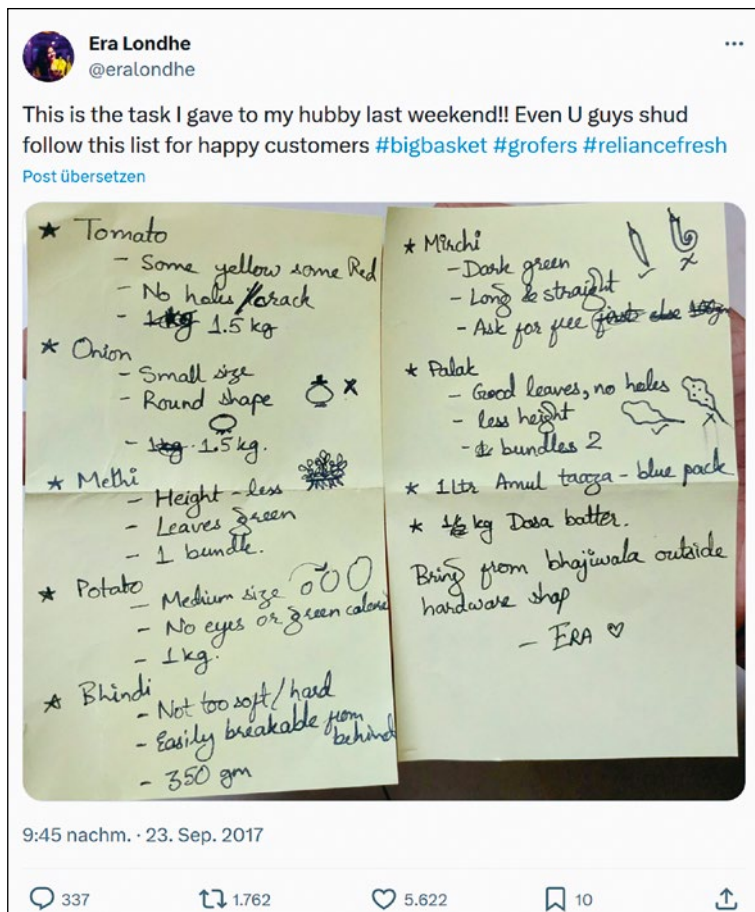 Era Londhe
@eralondhe
This is the task I gave to my hubby last weekend!! Even U guys shud
follow this list for happy customers #bigbasket #grofers #reliancefresh
Post übersetzen
★ Tomato
- Some yellow some Red
- No holes/crack
- 1kg 1.5 kg
★ Onion
- Small size
- Round shape
- 1kg. 1.5 kg.
★ Methi
- Height - less
- Leaves green
- 1 bundle.
★ Potato
- Medium size
- No eyes or green
- 1 kg.
★ Bhindi
- Not too soft/hard
- Easily breakable from
behind
- 350 gm
★ Mirchi
- Dark green
- Long & straight
- Ask for free
★ Palak
- Good leaves, no holes
- less height
- bundles 2
★ 1 Ltr Amul taaza - blue pack
★ kg Dosa batter.
Bring from bhajiwala outside
hardware shop
- ERA ♡
9:45 nachm. · 23. Sep. 2017
337
1.762
5.622
10